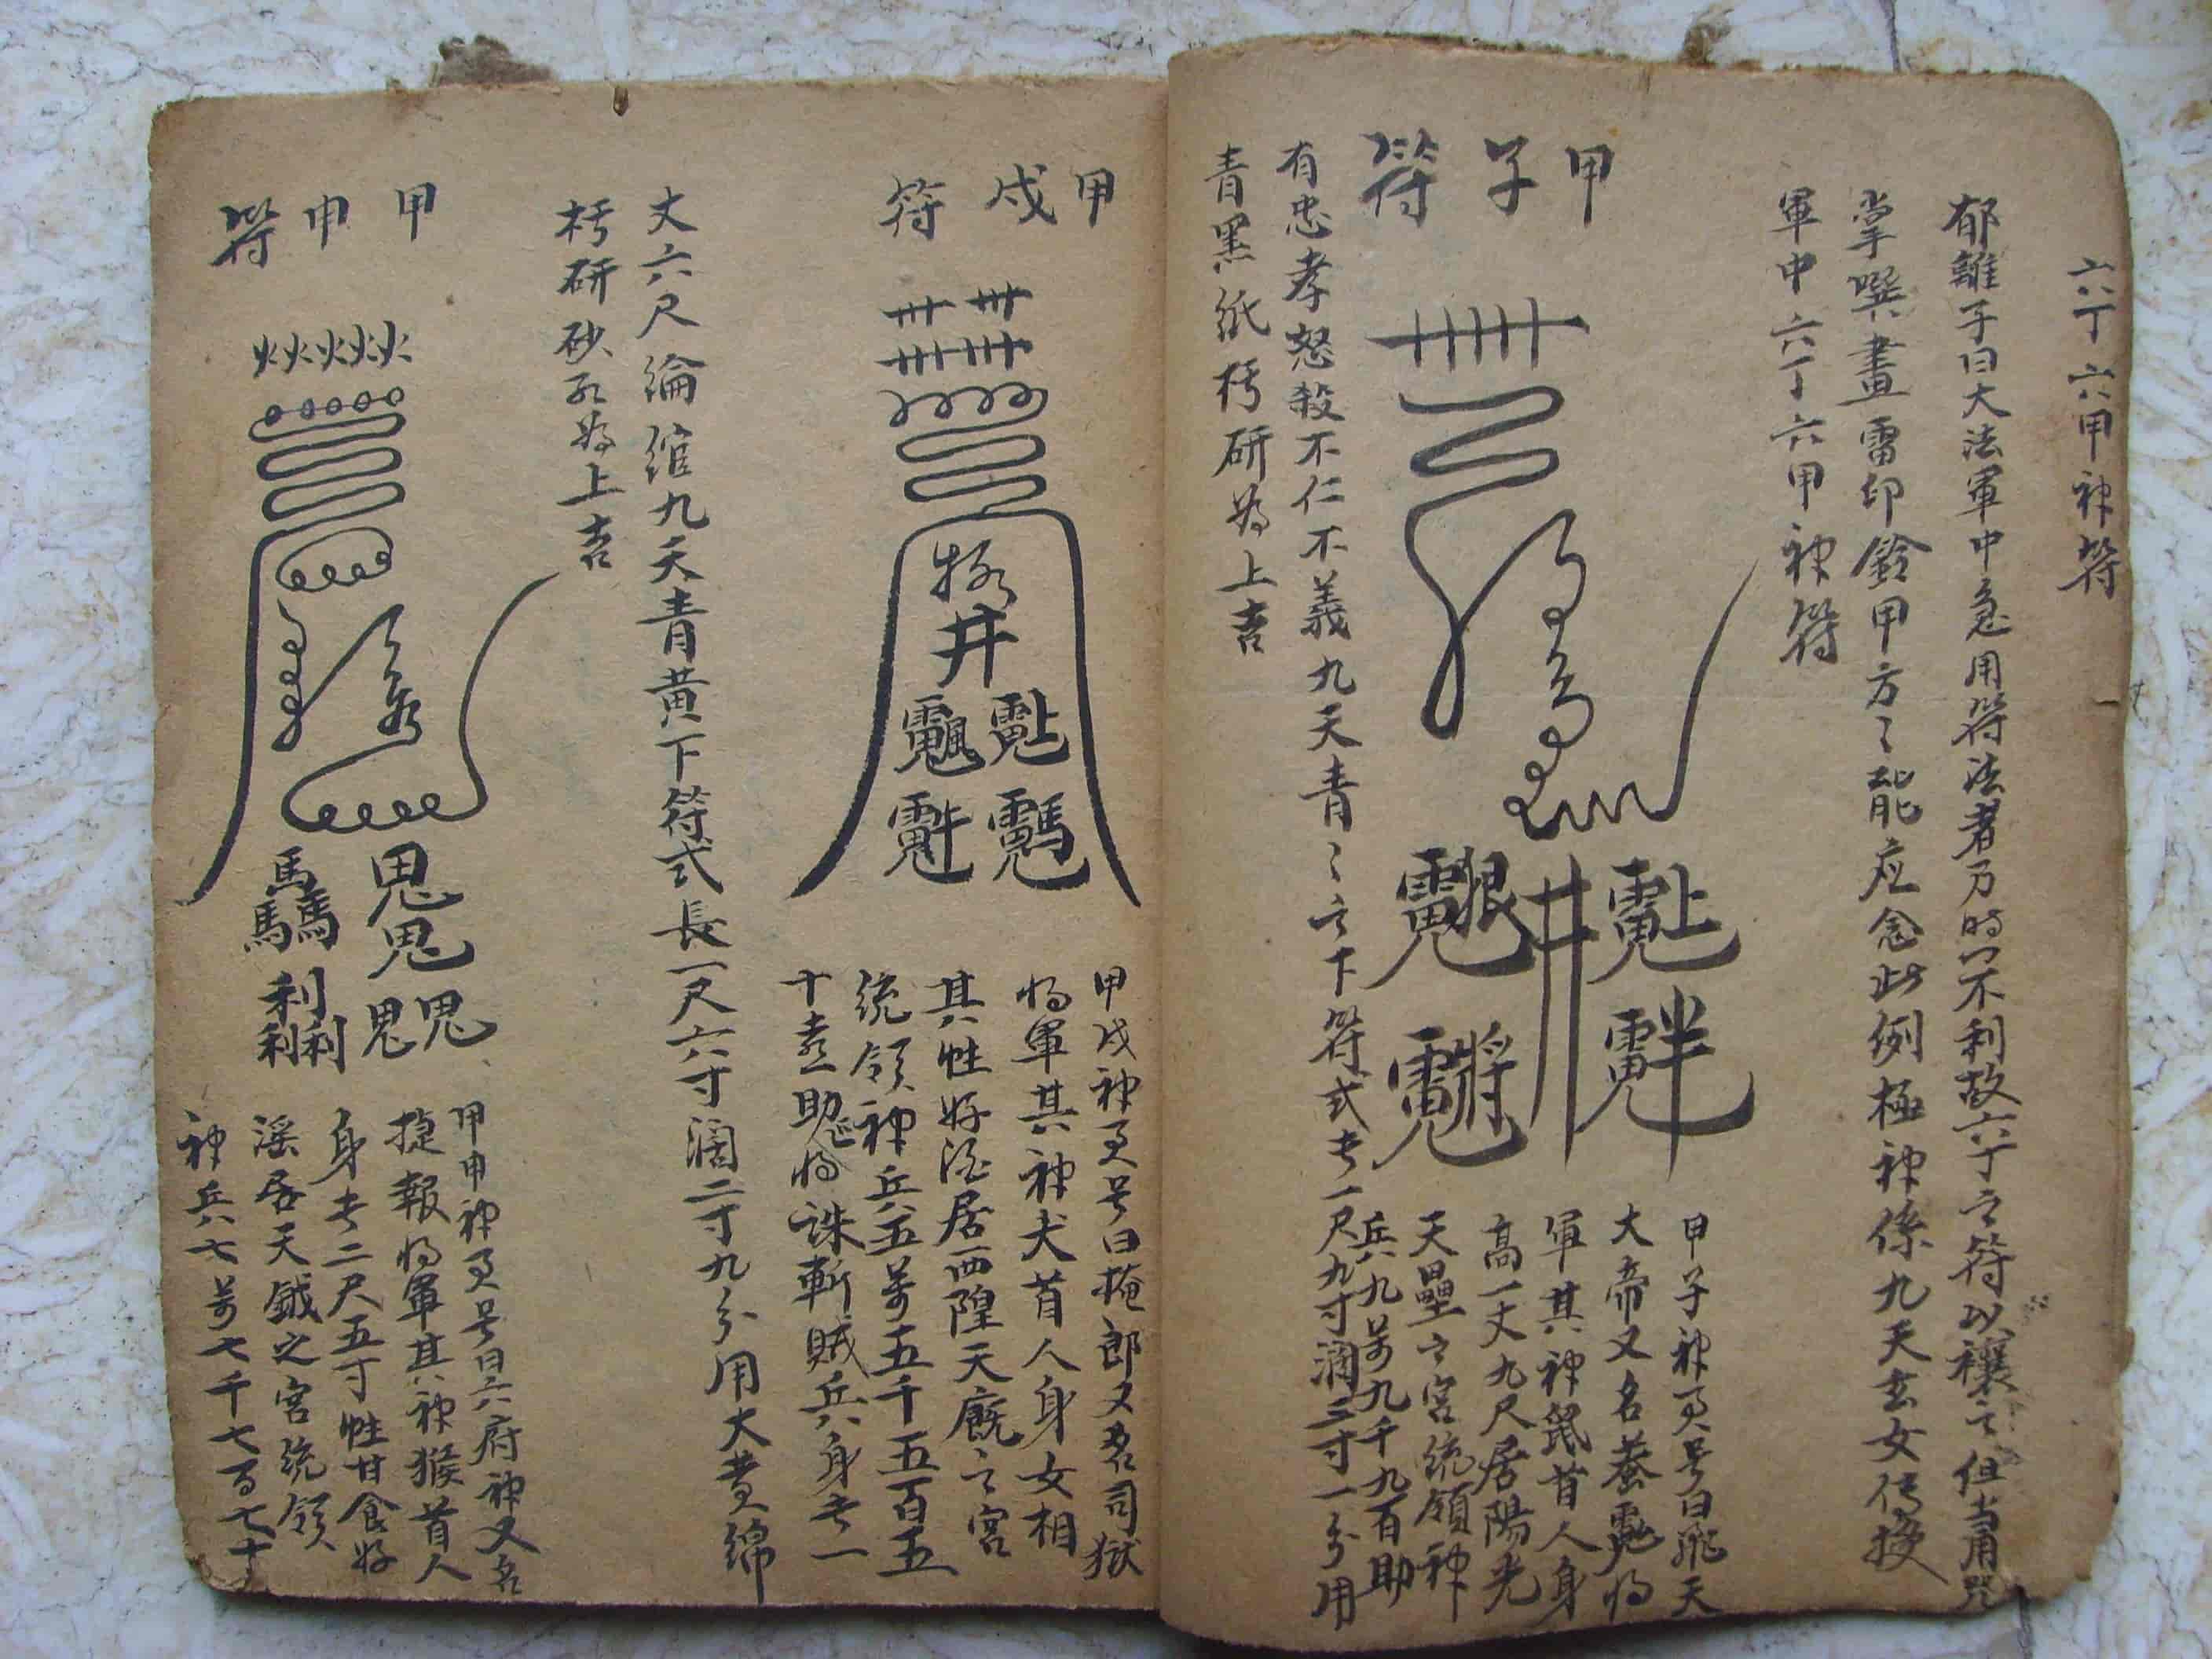 六丁六甲神符
郁離子曰大法軍中急用符法者乃時不利故六丁之符以禳之但当用
掌噀畫雷印鈴甲方〻能应念此例極神係九天玄女传授
軍中六丁六甲神符
甲子符
甲子神員号曰飛天
大帝又名
軍其神鼠首人身
高一丈九尺居陽光
天罡之宮統領神
兵九萬九千九百助
有忠孝怒殺不仁不義九天青〻之下符式长一尺九寸濶三寸一分用
青黑紙 研為上吉
甲戌符
甲戌神員号曰掩郎又名司獄
将軍其神犬首人身女相
其性好酒居西隍天廐之宮
統領神兵五萬五千五百五
十 助 将誅斬賊兵身长一
丈六尺綸綰九天青黄下符式長一尺六寸濶二寸九分用大黄綿
研砂 為上吉
甲申符
甲申神員号曰六府神又名
捷報将軍其神猴首人
身长二尺五寸性甘食好
淫居天鉞之宮統領
神兵七萬七千七百七十